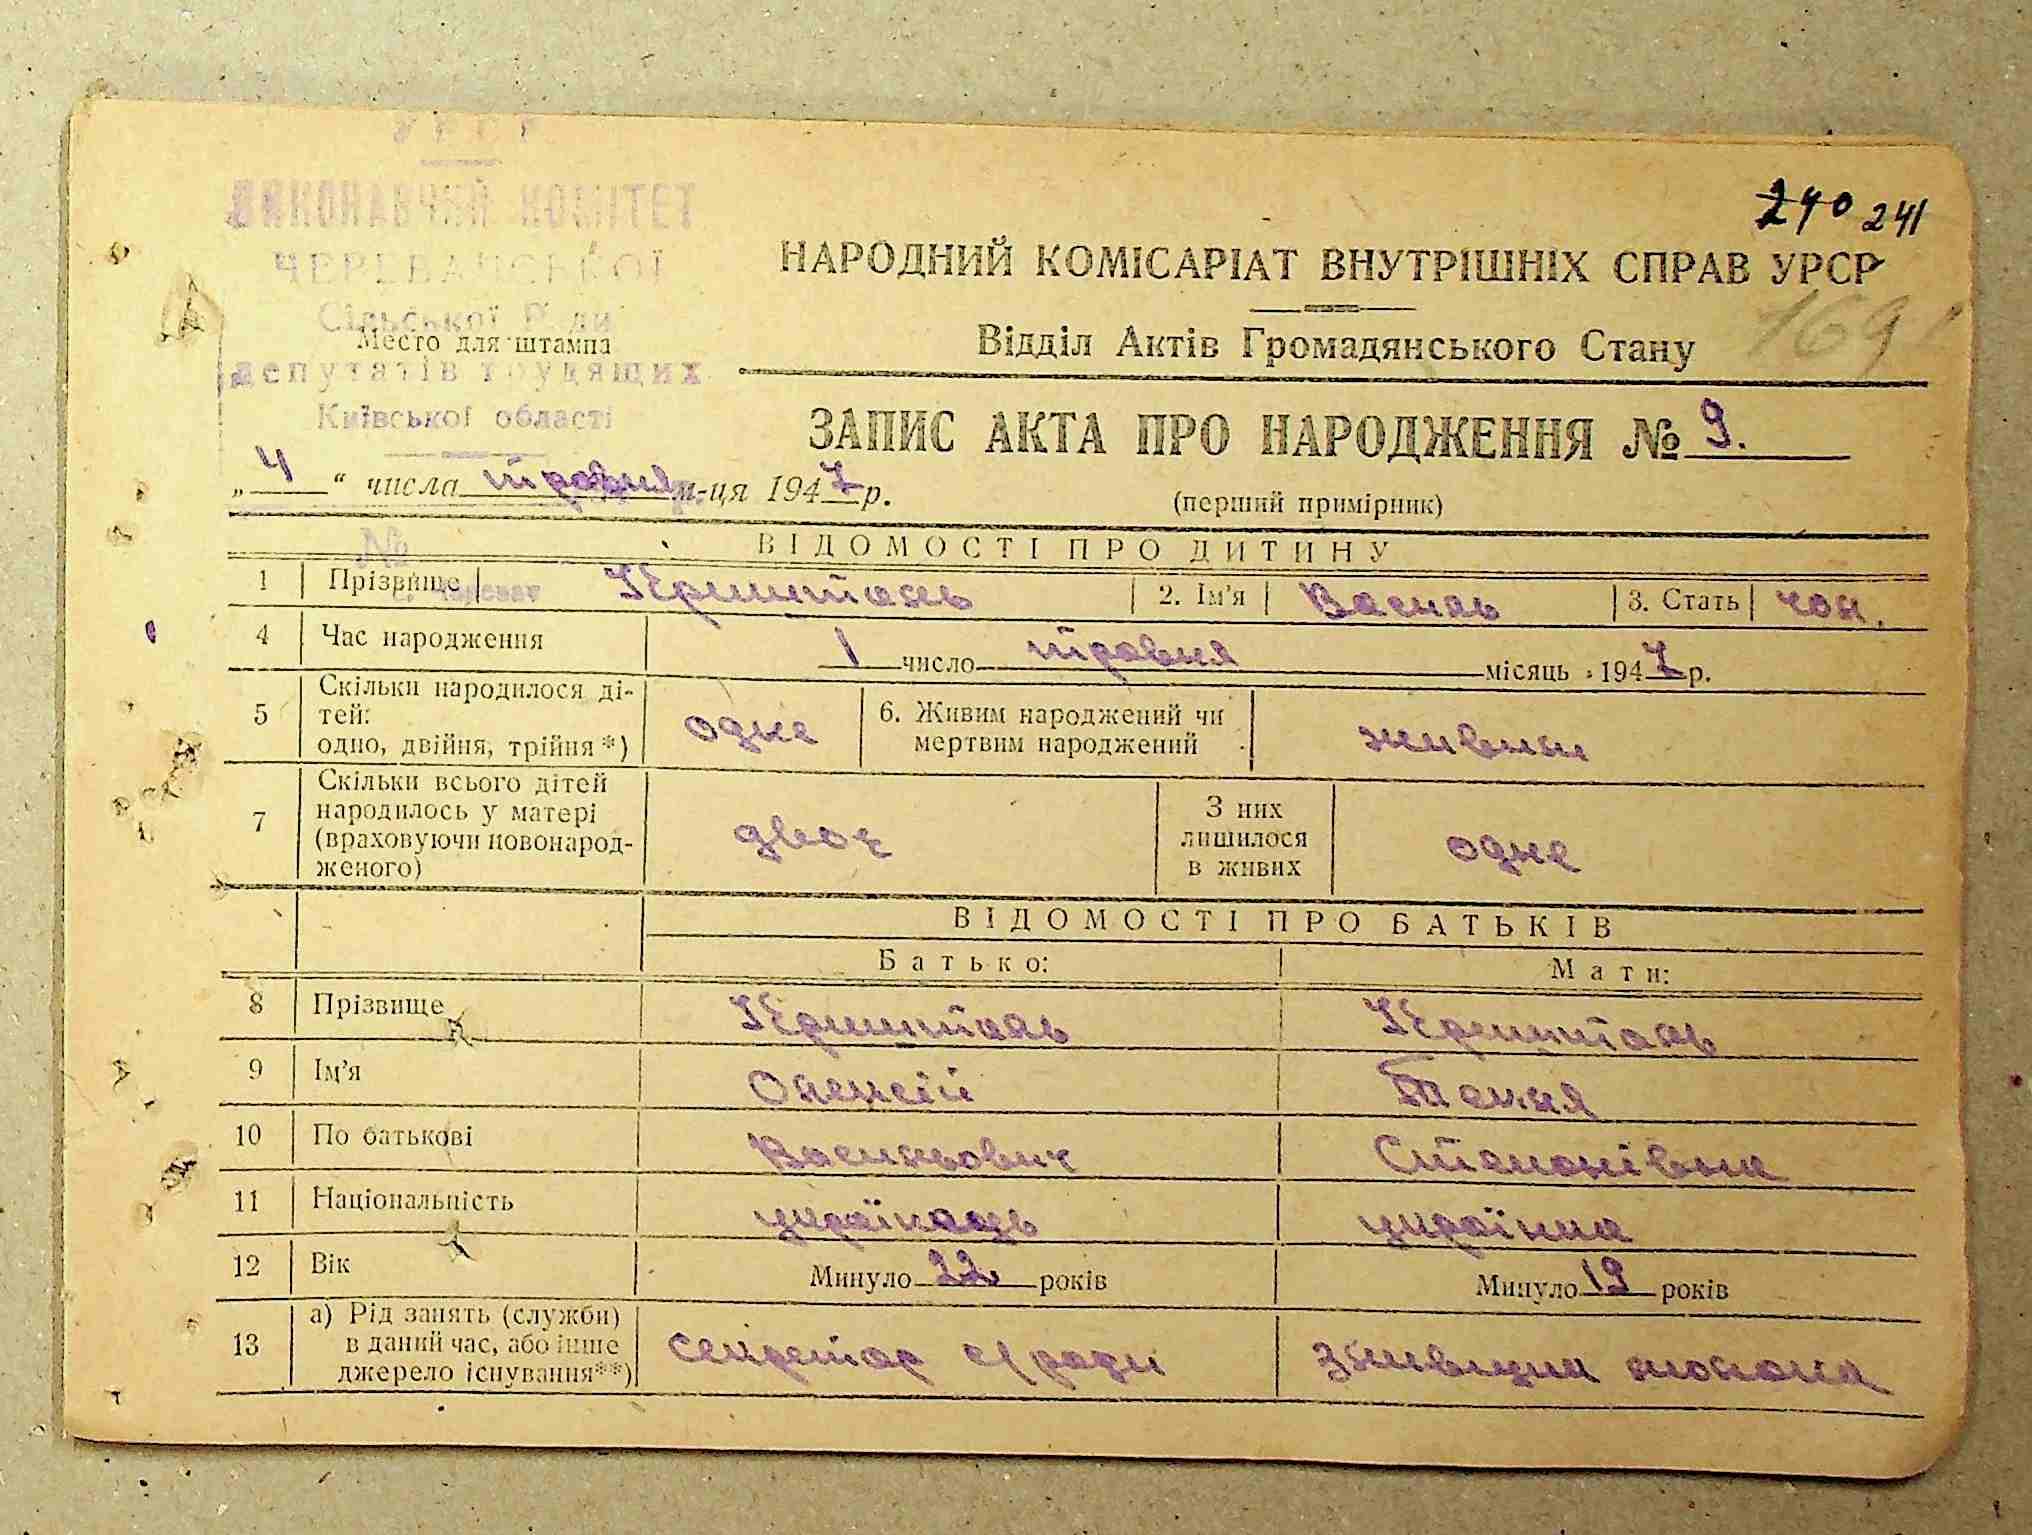 УРСР
ВИКОНАВЧИЙ КОМІТЕТ
ЧЕРЕВАНСЬКОЇ
Сільської Ради
Место для штампа
депутатів трудящих
Київської області
240 241
НАРОДНИЙ КОМІСАРІАТ ВНУТРІШНІХ СПРАВ УРСР
169
Відділ Актів Громадянського Стану
ЗАПИС АКТА ПРО НАРОДЖЕННЯ № 9.
„4“ числа травня м-ця 1947 р.
(перший примірник)
№
ВІДОМОСТІ ПРО ДИТИНУ
1 Прізвище Кришталь 2. Ім'я Василь 3. Стать чол.
4 Час народження 1 число травня місяць 1947 р.
5 Скільки народилося дітей: одно, двійня, трійня*) одне 6. Живим народжений чи мертвим народжений живим
7 Скільки всього дітей народилось у матері (враховуючи новонародженого) двоє З них лишилося в живих одне
ВІДОМОСТІ ПРО БАТЬКІВ
Батько: Мати:
8 Прізвище Кришталь Кришталь
9 Ім'я Олексій
10 По батькові Васильович
11 Національність українець українка
12 Вік Минуло 22 років Минуло 19 років
13 а) Рід занять (служби) в даний час, або інше джерело існування**) секретар с/ради